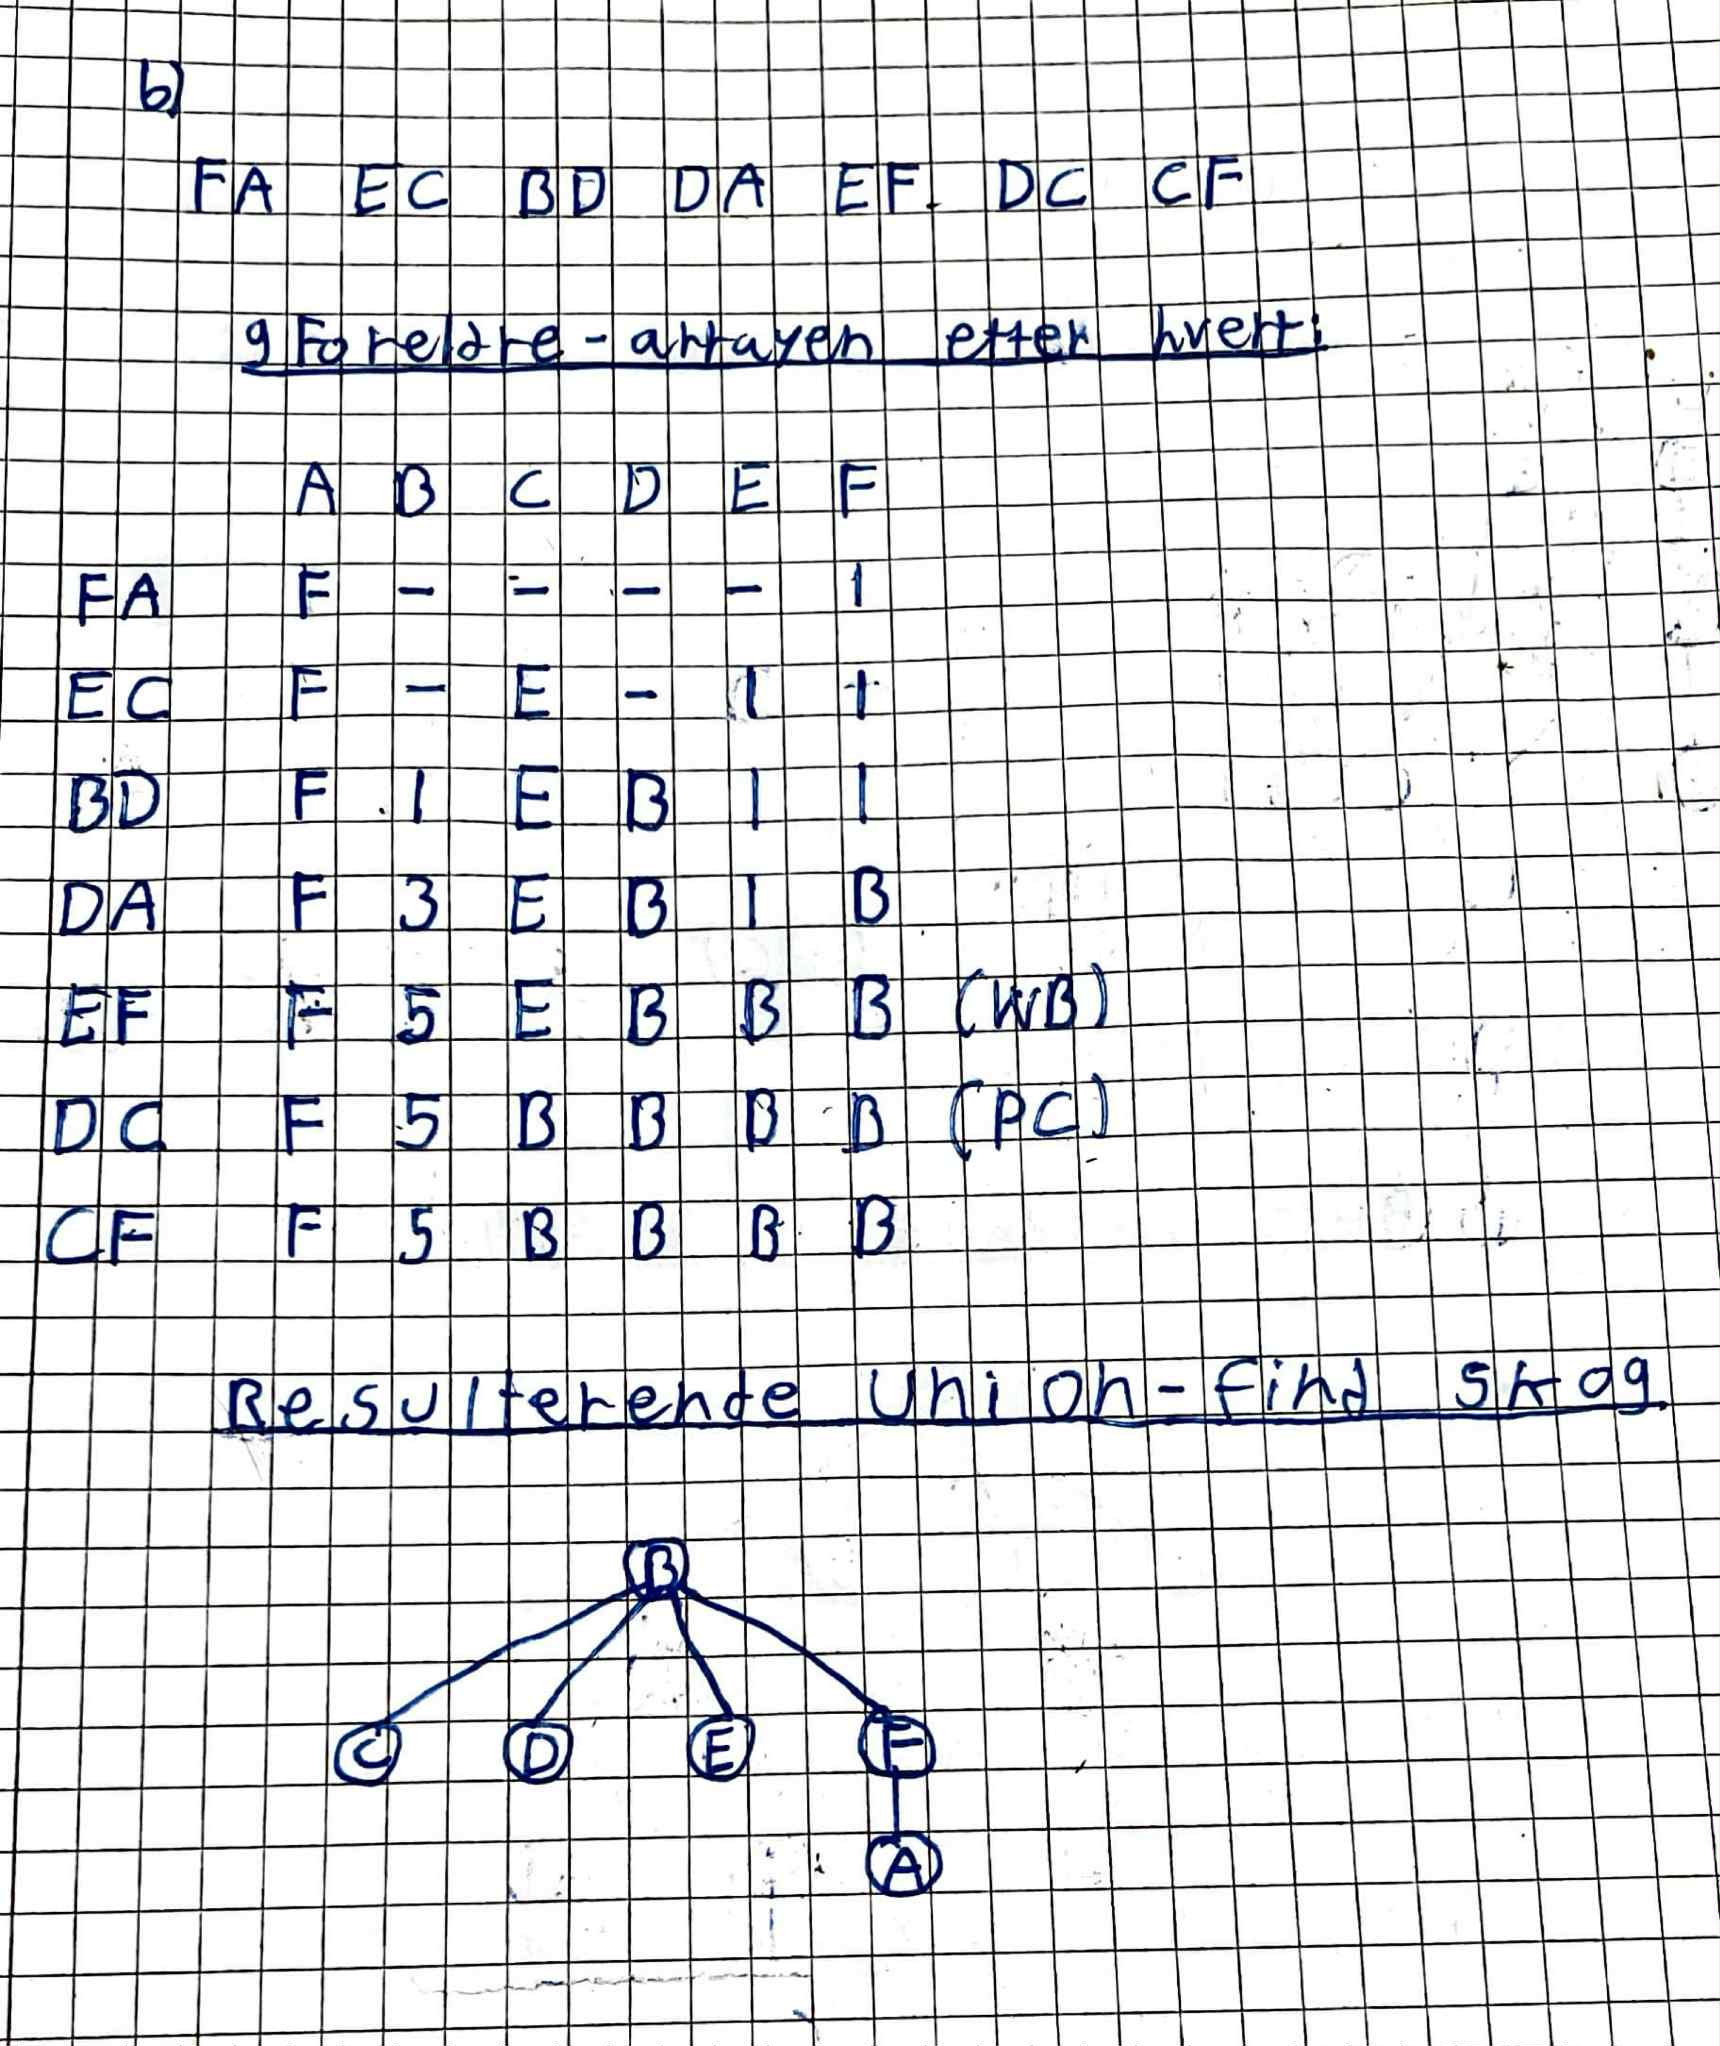 b)
FA EC BD DA EF DC CF
g Foreldre-arrayen etter hvert:
A B C D E F
FA F - - - - 1
EC F - E - 1 1
BD F 1 E B 1 1
DA F 3 E B 1 B
EF F 5 E B B B (WB)
DC F 5 B B B B (PC)
CF F 5 B B B B
Resulterende union-find skog
B
C D E F
A